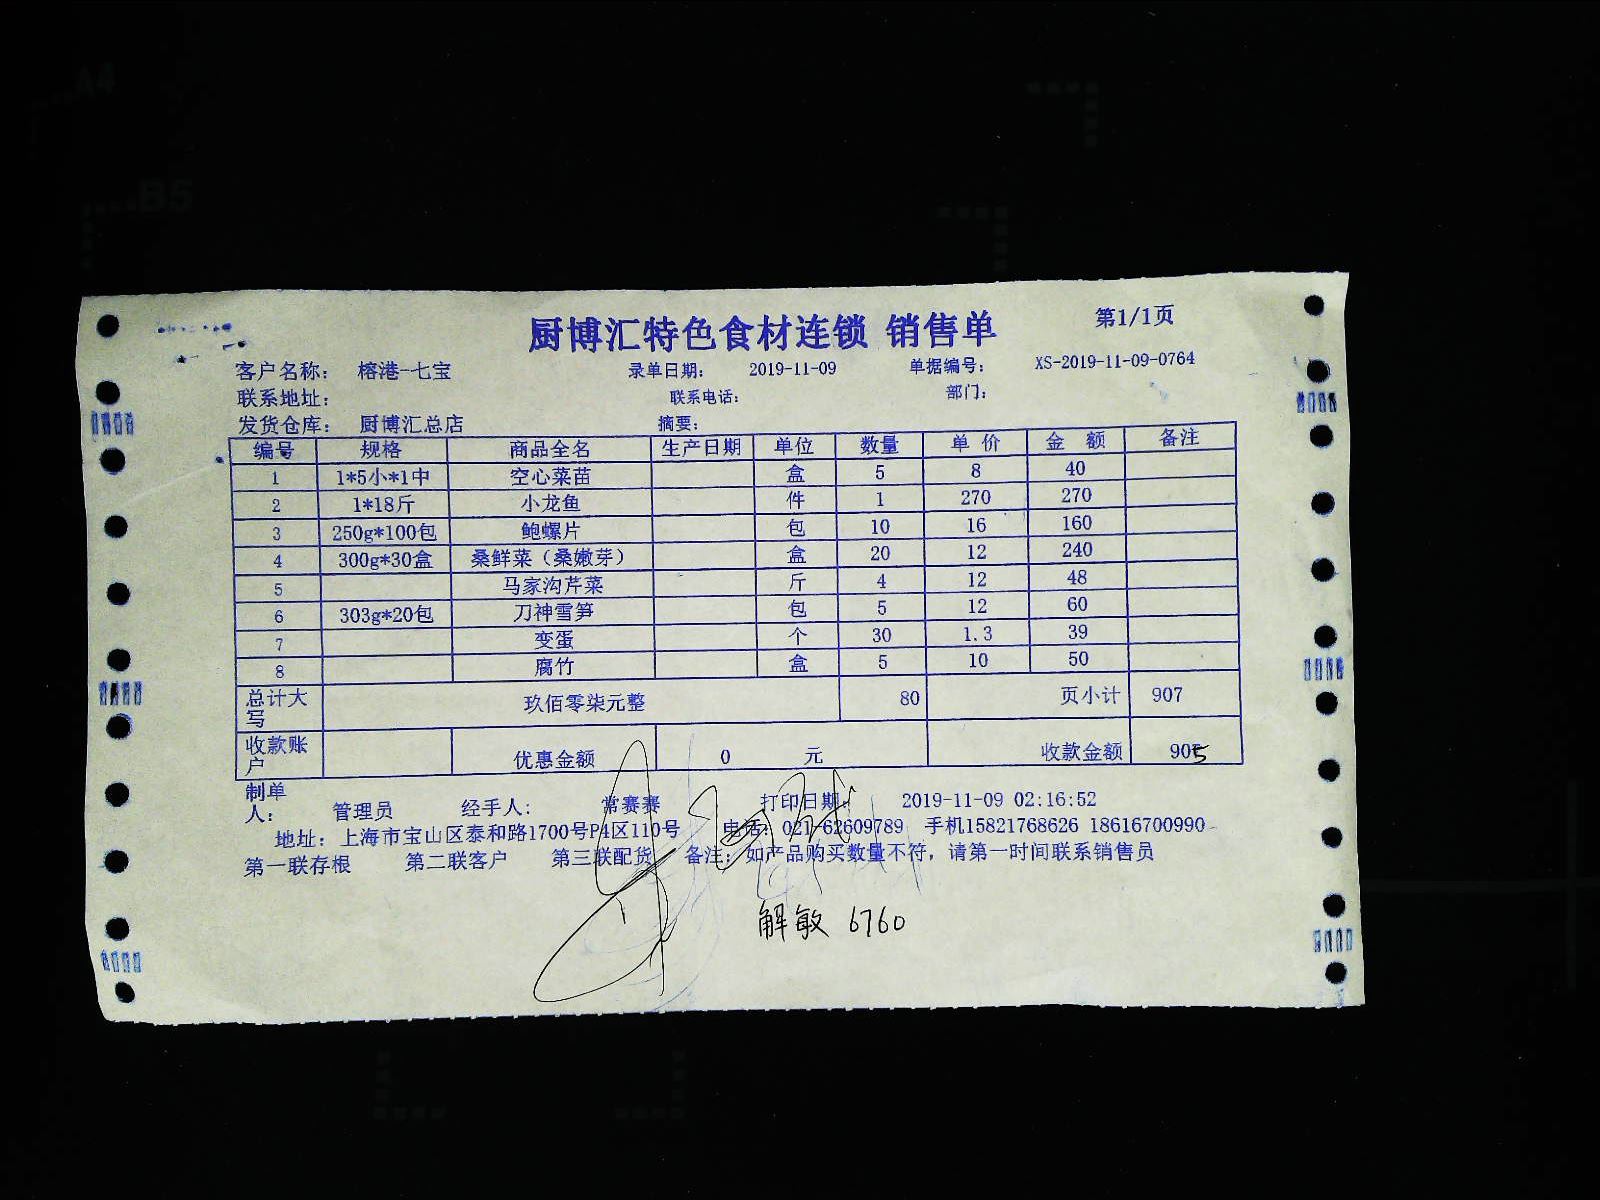 A4
B5
厨博汇特色食材连锁 销售单 第1/1页
客户名称: 榕港-七宝 录单日期: 2019-11-09 单据编号: XS-2019-11-09-0764
联系地址: 联系电话: 部门:
发货仓库: 厨博汇总店 摘要:
编号 规格 商品全名 生产日期 单位 数量 单价 金额 备注
1 1*5小*1中 空心菜苗 盒 5 8 40
2 1*18斤 小龙鱼 件 1 270 270
3 250g*100包 鲍螺片 包 10 16 160
4 300g*30盒 桑鲜菜（桑嫩芽） 盒 20 12 240
5 马家沟芹菜 斤 4 12 48
6 303g*20包 刀神雪笋 包 5 12 60
7 变蛋 个 30 1.3 39
8 腐竹 盒 5 10 50
总计大写 玖佰零柒元整 80 页小计 907
收款账户 优惠金额 0 元 收款金额 905
制单人: 管理员 经手人: 常赛赛 打印日期: 2019-11-09 02:16:52
地址: 上海市宝山区泰和路1700号P4区110号 电话: 021-62609789 手机15821768626 18616700990
第一联存根 第二联客户 第三联配货 备注: 如产品购买数量不符，请第一时间联系销售员
解敏 6760